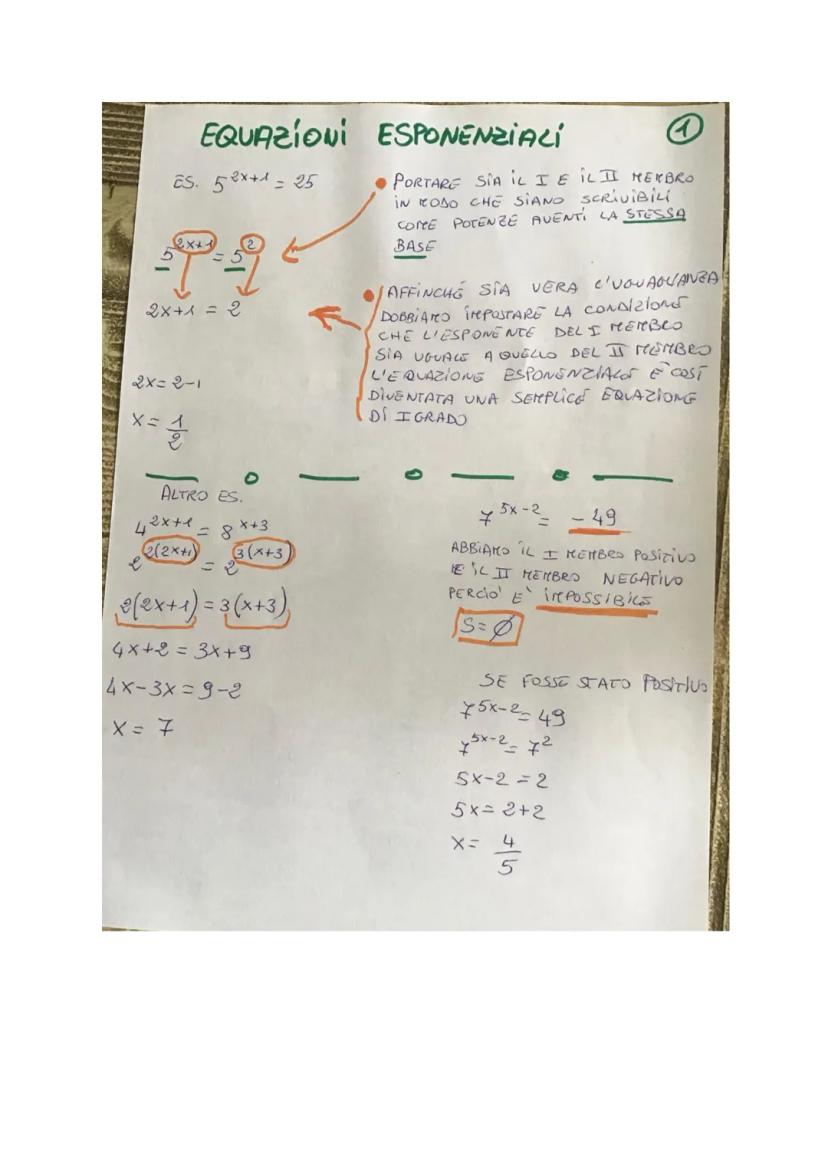 EQUAZIONI ESPONENZIALI
1
ES. 5^{2x+1} = 25
• PORTARE SIA IL I E IL II MEMBRO
IN MODO CHE SIANO SCRIVIBILI
COME POTENZE AVENTI LA STESSA
BASE
5^{2x+1} = 5^{2}
2x+1 = 2
• AFFINCHÉ SIA VERA L'UGUAGLIANZA
DOBBIAMO IMPOSTARE LA CONDIZIONE
CHE L'ESPONENTE DEL I MEMBRO
SIA UGUALE A QUELLO DEL II MEMBRO
L'EQUAZIONE ESPONENZIALE E' COSÍ
DIVENTATA UNA SEMPLICE EQUAZIONE
DI I GRADO
2x = 2-1
x = 1/2
ALTRO ES.
4^{2x+1} = 8^{x+3}
2^{2(2x+1)} = 2^{3(x+3)}
2(2x+1) = 3(x+3)
4x+2 = 3x+9
4x-3x = 9-2
x = 7
7^{5x-2} = -49
ABBIAMO IL I MEMBRO POSITIVO
E IL II MEMBRO NEGATIVO
PERCIO' E' IMPOSSIBILE
S = ∅
SE FOSSE STATO POSITIVO
7^{5x-2} = 49
7^{5x-2} = 7^{2}
5x-2 = 2
5x = 2+2
x = 4/5